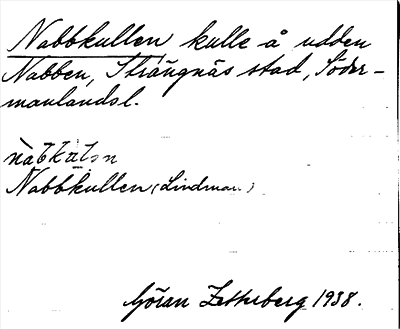 Nabbkullen kulle å udden
Nabben, Strängnäs stad, Söder-
manlandsl.
Nabbkullen (Lindman.)
Göran Zetterberg 1938.